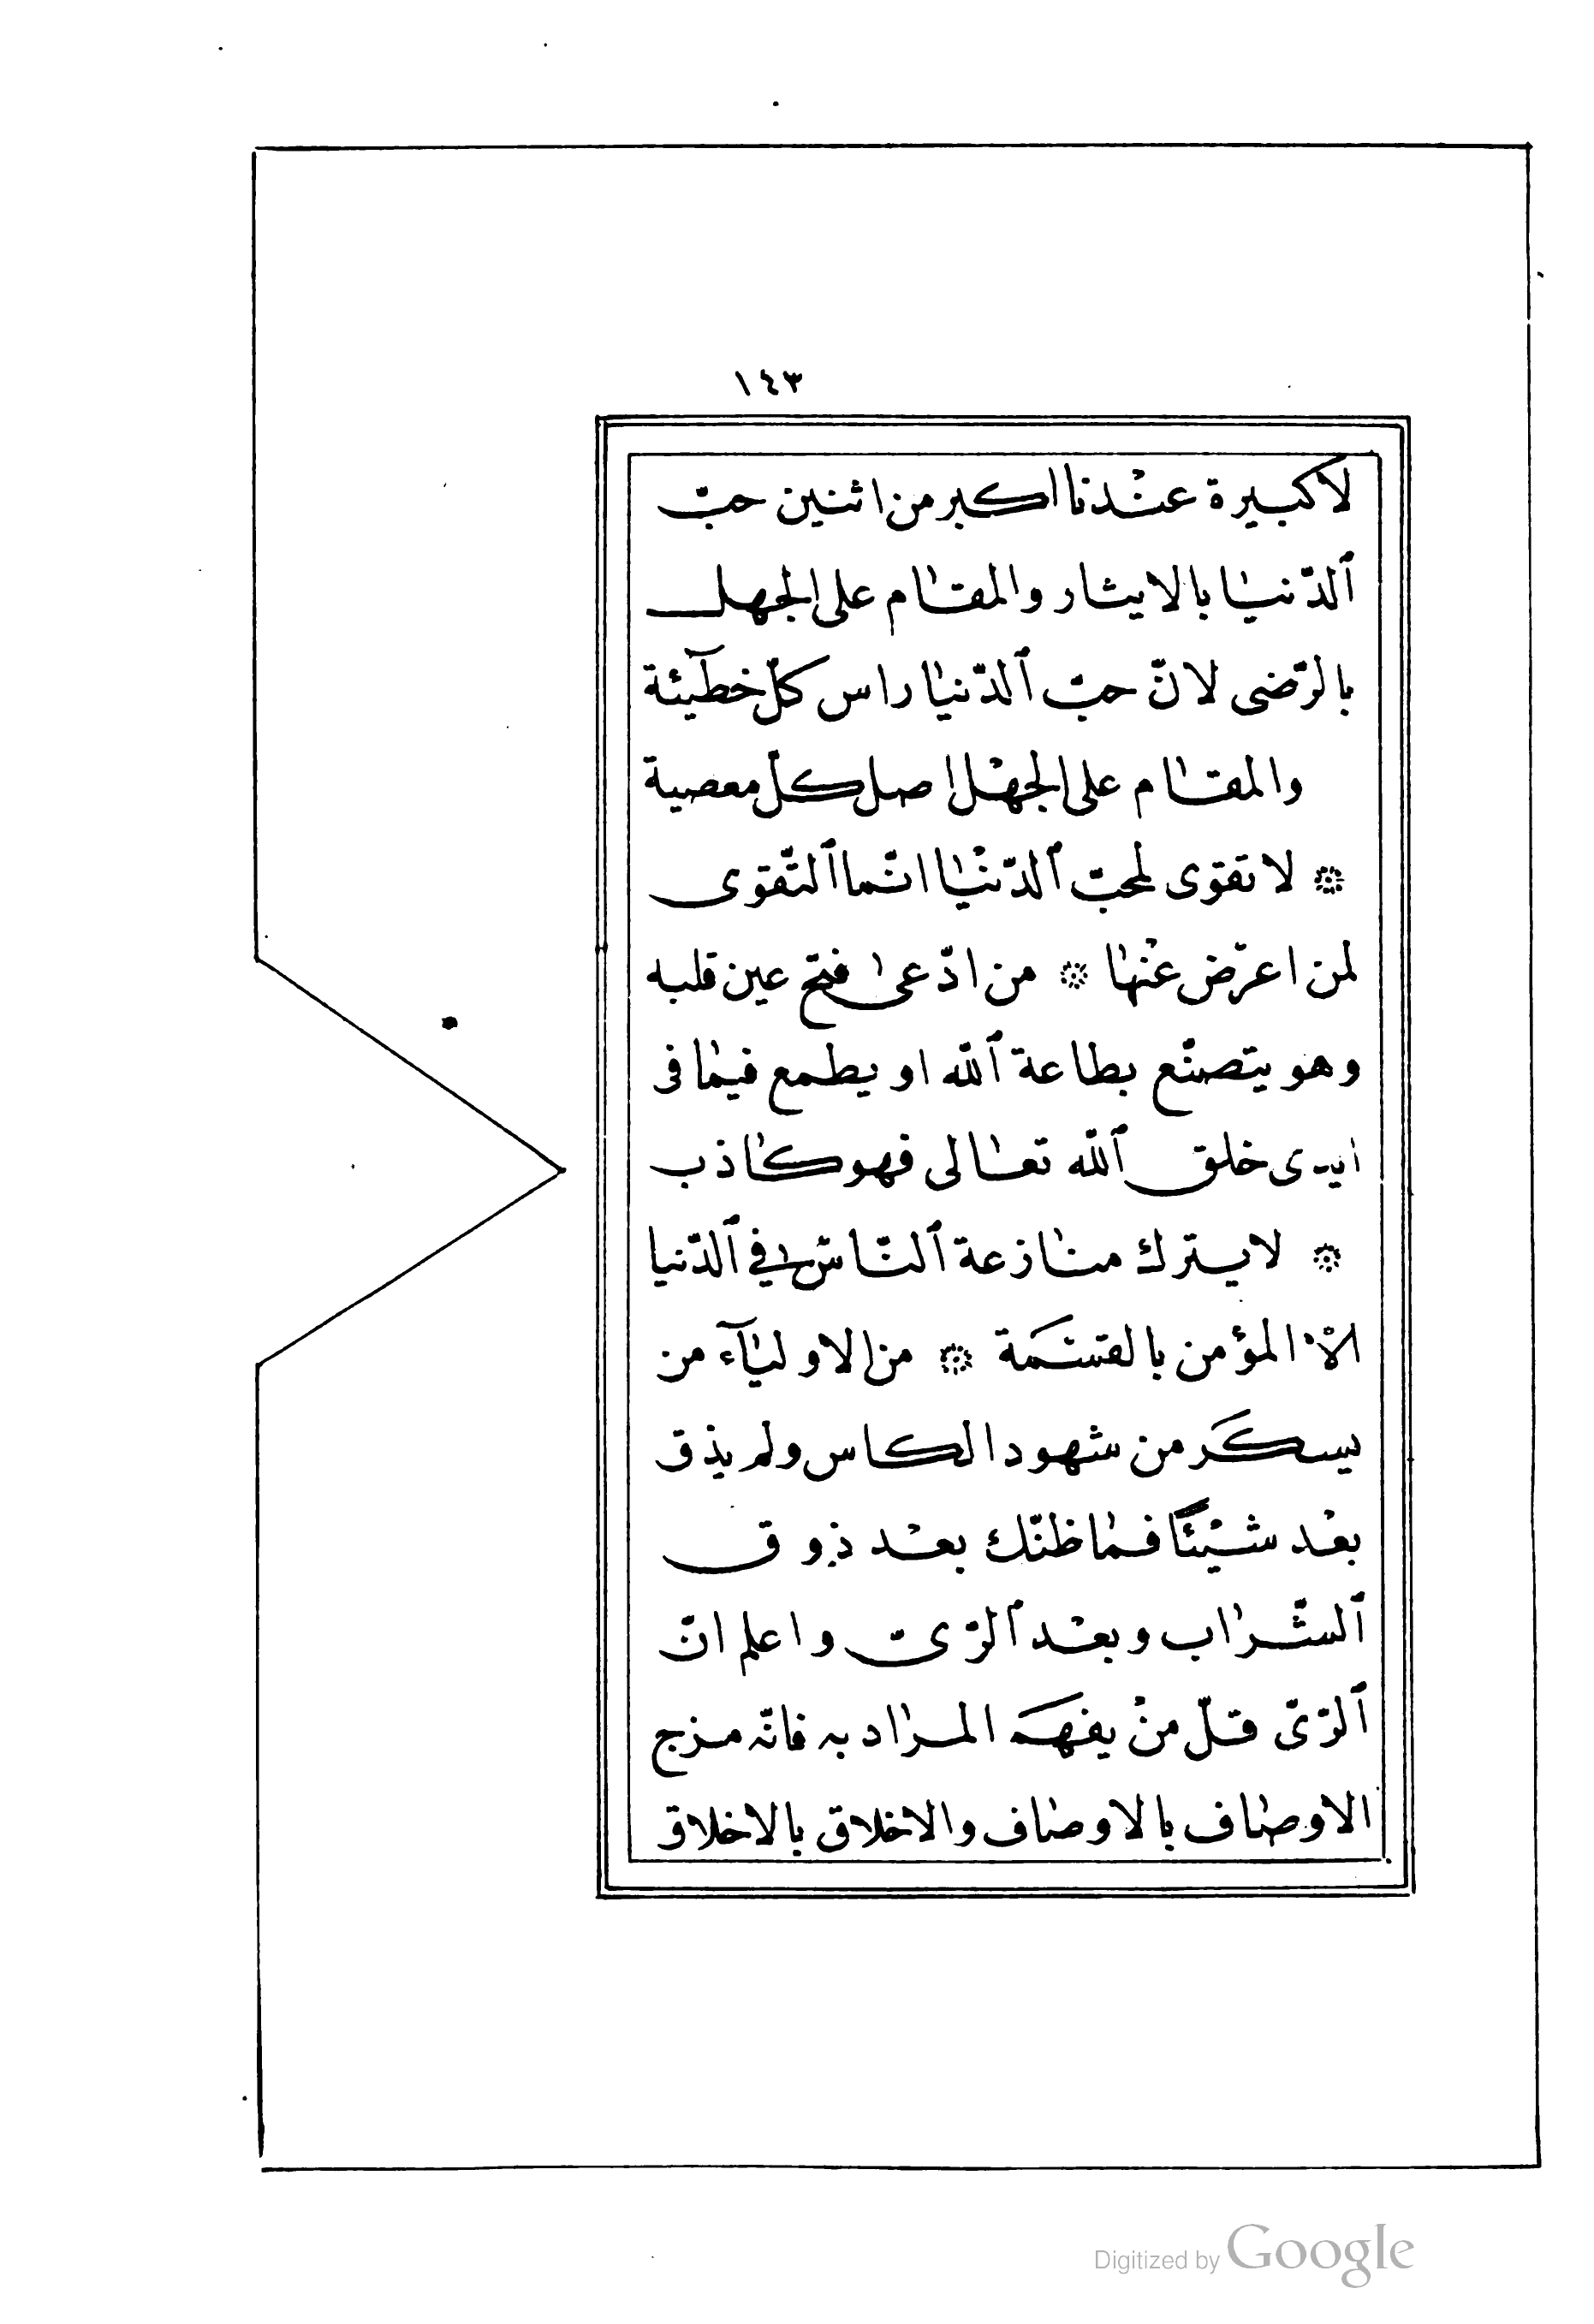 ١٤٣
لا كبيرة عنْدنا اكبر من اثنين حبّ
ٱلدّنيا بالايثار والمقام على الجهل
بالرّضى لانّ حبّ ٱلدّنيا راس كلّ خطيٓئة
والمقام على الجهْل اصل كلّ معصية
۞ لا تقوى لمحبّ ٱلدّنْيا انّما ٱلتّقوى
لمن اعرّض عنْها ۞ من ادّعى فتح عين قلبه
وهو يتصنّع بطاعة ٱللّه او يطمع فيما فى
ايدى خلق ٱللّه تعالى فهو كاذب
۞ لا يترك منازعة ٱلنّاس فى ٱلدّنيا
الّا المؤمن بالقسْمَة ۞ من الاوليآء من
يسكَر من شهود الكاس ولم يذق
بعْد شيْئًا فما ظنّك بعْد ذوق
ٱلشّراب وبعْد ٱلرّىّ واعلم انّ
ٱلرّىّ قلّ منْ يفهَم المراد به فانّه مزج
الاوصاف بالاوصاف والاخلاق بالاخلاق
Digitized by Google